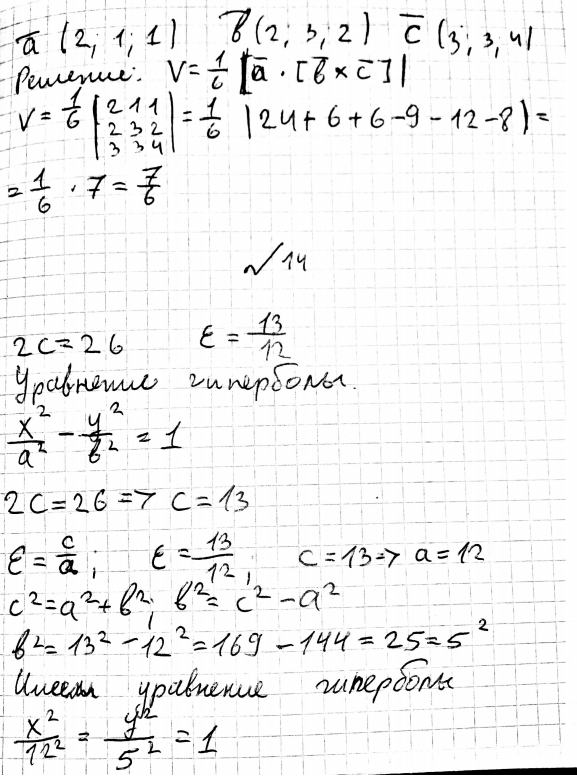 a̅ (2; 1; 1) b̅ (2; 3; 2) c̅ (3; 3; 4)
Решение: V = 1/6 |a̅ · [b̅ × c̅]|
V = 1/6 |2 1 1; 2 3 2; 3 3 4| = 1/6 |24 + 6 + 6 - 9 - 12 - 8| =
= 1/6 · 7 = 7/6
√14
2c = 26 ε = 13/12
Уравнение гиперболы.
x²/a² - y²/b² = 1
2c = 26 => c = 13
ε = c/a; ε = 13/12; c = 13 => a = 12
c² = a² + b²; b² = c² - a²
b² = 13² - 12² = 169 - 144 = 25 = 5²
Имеем уравнение гиперболы
x²/12² = y²/5² = 1